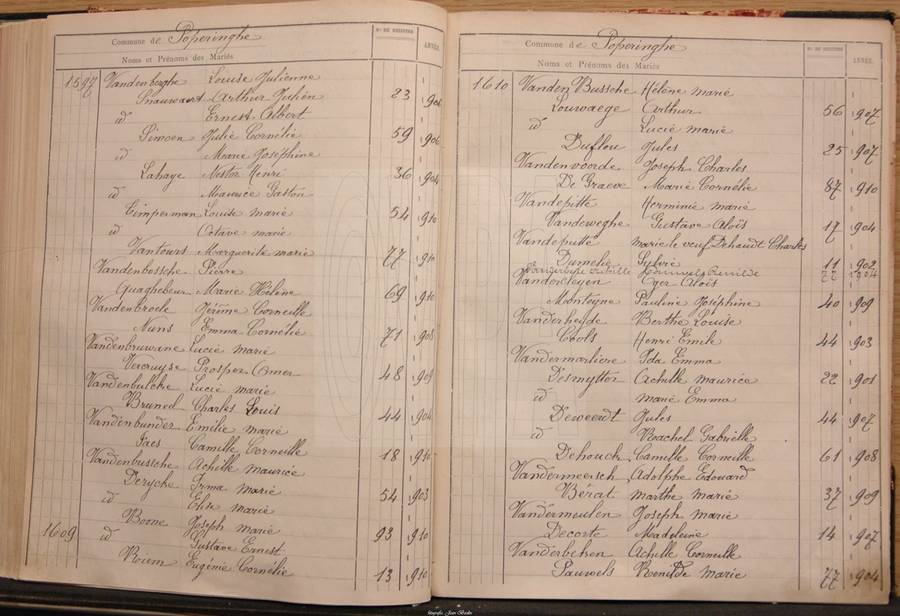 Commune de Poperinghe
Nos DE REGISTRE
ANNÉE
Noms et Prénoms des Mariés
1597 Vandenberghe Louise Julienne
Snauwaert Arthur Julien 23 1906
id Ernest Albert
Simoen Julie Cornélie 59 1906
id Marie Joséphine
Lahaye Nestor Henri 36 1904
id Maurice Gaston
Timperman Louise marie 54 1910
id Octave marie
Vantours Marguerite marie 77 1910
Vandenbossche Pierre
Quaghebeur Marie Hélène 69 1910
Vandenbroele Jérôme Corneille
Nuns Emma Cornélie 71 1908
Vandenbruwane Lucie marie
Vercruyse Prosper Omer 48 1909
Vandenbulcke Lucie marie
Bruneel Charles Louis 44 1904
Vandenbunder Emélie marie
Faes Camille Corneille 18 1910
Vandenbussche Achille maurice
Deryche Irma marie 54 1903
id Elise marie
Boone Joseph marie 93 1910
1609 id Gustave Ernest
Rieem Eugénie Cornélie 13 1910
Commune de Poperinghe
Nos DE REGISTRE
ANNÉE
Noms et Prénoms des Mariés
1610 Vanden Bussche Hélène marie
Louwaege Arthur 56 1907
id Lucie marie
Duflou Jules 25 1907
Vandenvoorde Joseph Charles
De Graeve Marie Cornélie 87 1910
Vandepitte Herminie marie
Vandeweghe Gustave Aloïs 17 1904
Vandeputte marie le veuf Dehaudt Charles
Dumelie Sylvie 11 1902
22 1904
Cyer Aloïs
Monteyne Pauline Joséphine 40 1909
Vanderheyde Berthe Louise
Cools Henri Emile 44 1903
Vandermarliere Ida Emma
Desmytter Achille maurice 22 1901
id marie Emma
Deweerdt Jules 44 1907
id Rachel Gabrielle
Dehouck Camille Corneille 61 1908
Vandermeersch Adolphe Edouard
Bérat marthe Marie 37 1909
Vandermeulen Joseph marie
Decorte Madeleine 14 1907
Vanderbeken Achille Corneille
Pauwels Romilde marie 77 1904
fotografie Jean Boidin